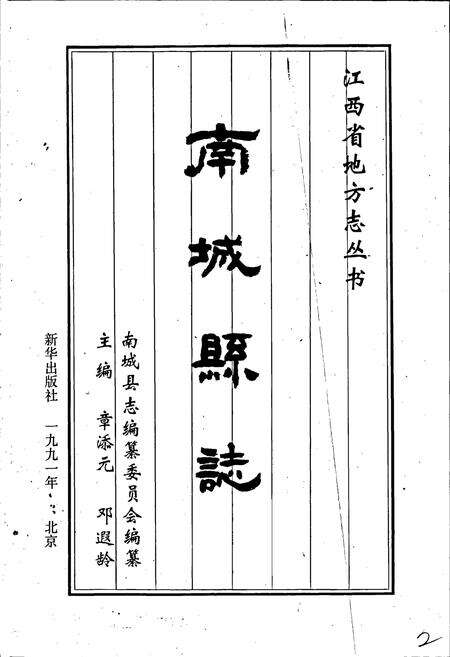 江西省地方志丛书
南城縣誌
南城县志编纂委员会编纂
主编 章添元 邓遐龄
新华出版社 一九九一年·北京
2